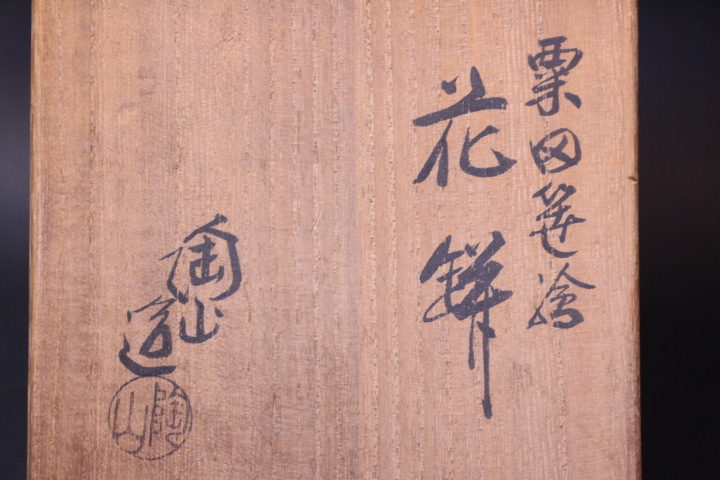 粟田筥絵
花鉼
陶山造
陶山